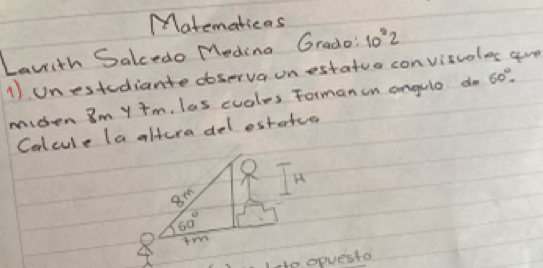 Matematicas
Laurith Salcedo Medina Grado: 10°2
1). Un estudiante observa un estatua con visuales que
miden 8m y 7m. las cuales Forman un angulo de 60°.
Calcule la altura del estatua
8m
H
60°
7m
opuesto